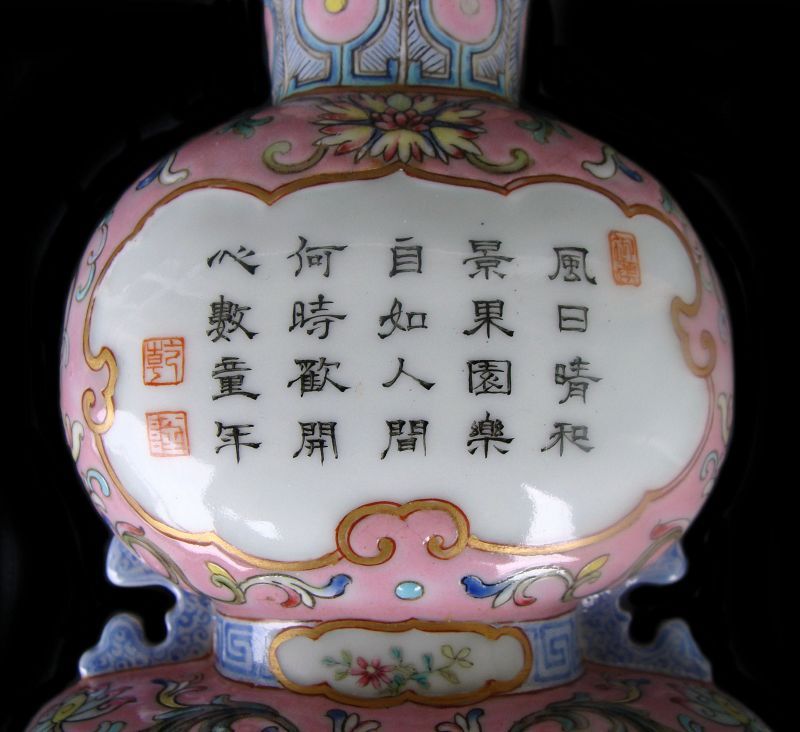 風日晴和
景果園樂
自如人間
何時歡開
心數童年
乾